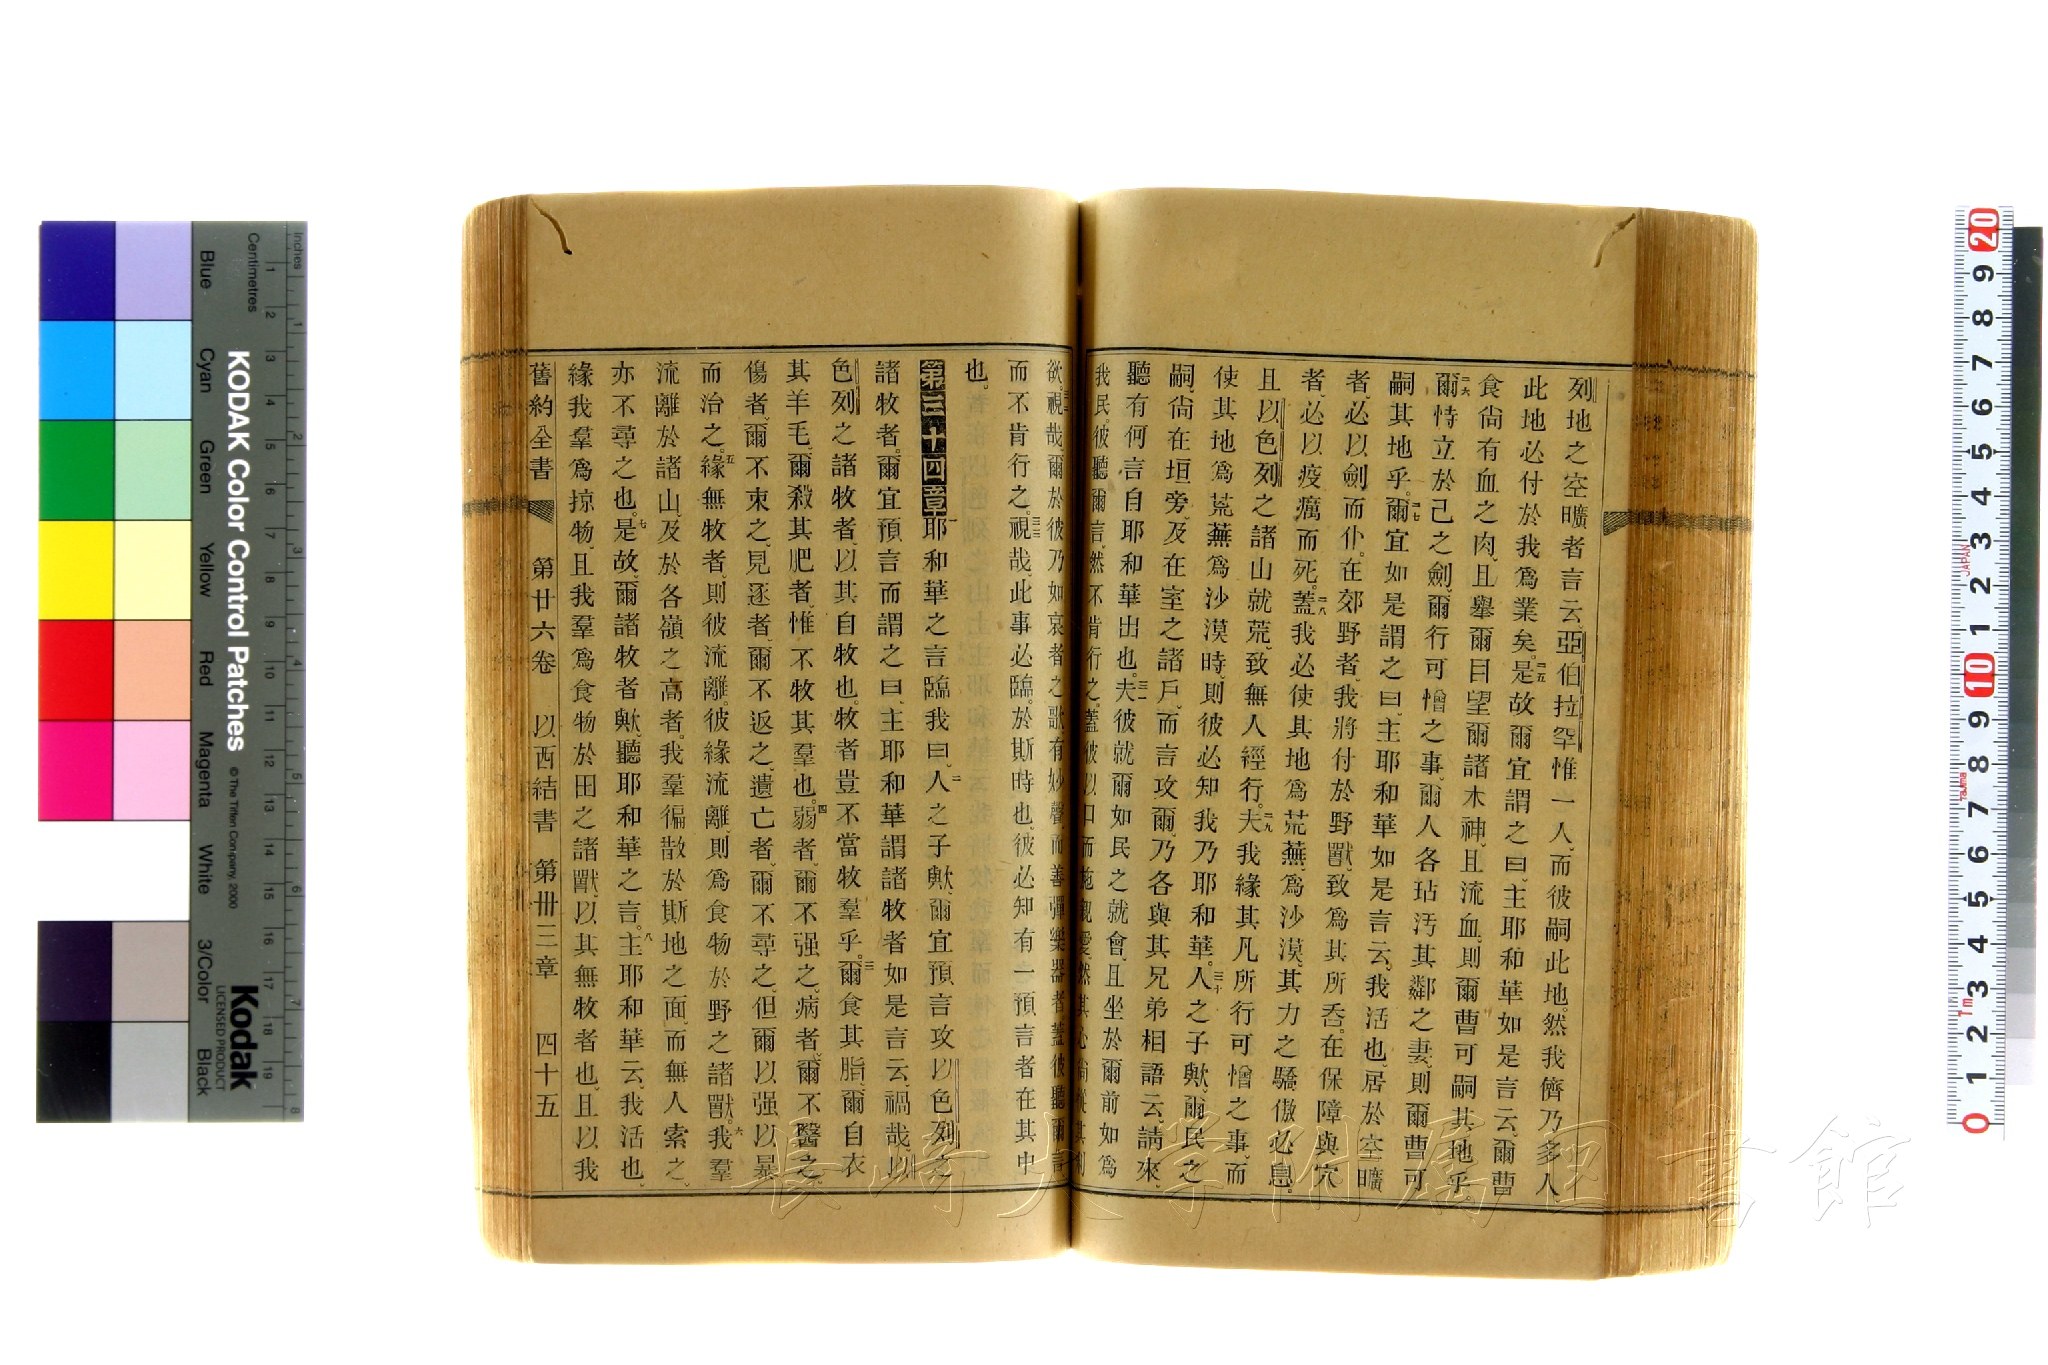 列地之空曠者言云、亞伯拉罕惟一人、而彼嗣此地、然我儕乃多人
此地必付於我爲業矣。二五是故爾宜謂之曰、主耶和華如是言云、爾曹
食尙有血之肉、且舉爾目望爾諸木神、且流血、則爾曹可嗣其地乎。
二六爾恃立於己之劍、爾行可憎之事、爾人各玷汚其鄰之妻、則爾曹可
嗣其地乎。二七爾宜如是謂之曰、主耶和華如是言云、我活也、居於空曠
者、必以劍而仆、在郊野者、我將付於野獸、致爲其所吞、在保障與穴
者、必以疫癘而死。二八蓋我必使其地爲荒蕪、爲沙漠、其力之驕傲必息、
且以色列之諸山就荒、致無人經行。二九夫我緣其凡所行可憎之事、而
使其地爲荒蕪爲沙漠時、則彼必知我乃耶和華。三十人之子歟、爾民之
嗣、尙在垣旁、及在室之諸戶、而言攻爾、乃各與其兄弟相語云、請來、
聽有何言自耶和華出也。三一夫彼就爾如民之就會、且坐於爾前如爲
我民、彼聽爾言、然不肯行之、蓋彼以口而施親愛、然其心尙從其利
欲。三二視哉、爾於彼乃如哀者之歌、有妙聲、而善彈樂器者、蓋彼聽爾言
而不肯行之。三三視哉、此事必臨、於斯時也、彼必知有一預言者在其中
也。
第三十四章 一耶和華之言臨我曰、二人之子歟、爾宜預言攻以色列之
諸牧者、爾宜預言而謂之曰、主耶和華謂諸牧者如是言云、禍哉、以
色列之諸牧者、以其自牧也、牧者豈不當牧羣乎。三爾食其脂、爾自衣
其羊毛、爾殺其肥者、惟不牧其羣也。四弱者、爾不强之、病者、爾不醫之、
傷者、爾不束之、見逐者、爾不返之、遺亡者、爾不尋之、但爾以强以暴
而治之。五緣無牧者、則彼流離、彼緣流離、則爲食物於野之諸獸。六我羣
流離於諸山、及於各嶺之高者、我羣徧散於斯地之面、而無人索之、
亦不尋之也。七是故、爾諸牧者歟、聽耶和華之言。八主耶和華云、我活也、
緣我羣爲掠物、且我羣爲食物於田之諸獸、以其無牧者也、且以我
舊約全書 第廿六卷 以西結書 第卅三章 四十五
KODAK Color Control Patches
© The Tiffen Company, 2000
Kodak
LICENSED PRODUCT
Inches
Centimetres
Blue
Cyan
Green
Yellow
Red
Magenta
White
3/Color
Black
JAPAN
Tajima
1m
長崎大学附属図書館